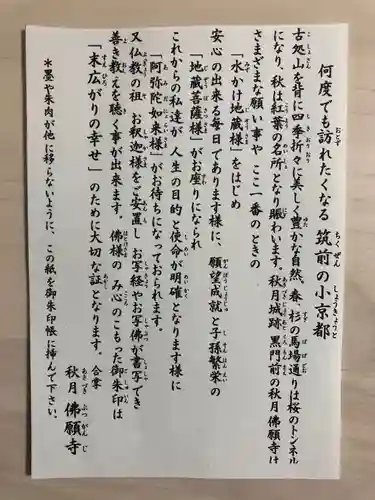 何度でも訪れたくなる 筑前の小京都
古処山を背に四季折々に美しく豊かな自然、春 杉の馬場通りは桜のトンネル
になり、秋は紅葉の名所となり賑わいます。秋月城跡 黒門前の秋月佛願寺は
さまざまな願い事や ここ一番のときの
「水かけ地蔵様」をはじめ
安心の出来る毎日であります様に、願望成就と子孫繁栄の
「地蔵菩薩様」がお座りになられ
これからの私達が 人生の目的と使命が明確となります様に
「阿弥陀如来様」がお待ちになっておられます。
又仏教の祖 お釈迦様をご安置し お写経やお写佛が書写でき
善き教えを聴く事が出来ます。佛様の み心のこもった御朱印は
「末広がりの幸せ」のために大切な証となります。 合掌
秋月 佛願寺
＊墨や朱肉が他に移らないように、この紙を御朱印帳に挿んで下さい。